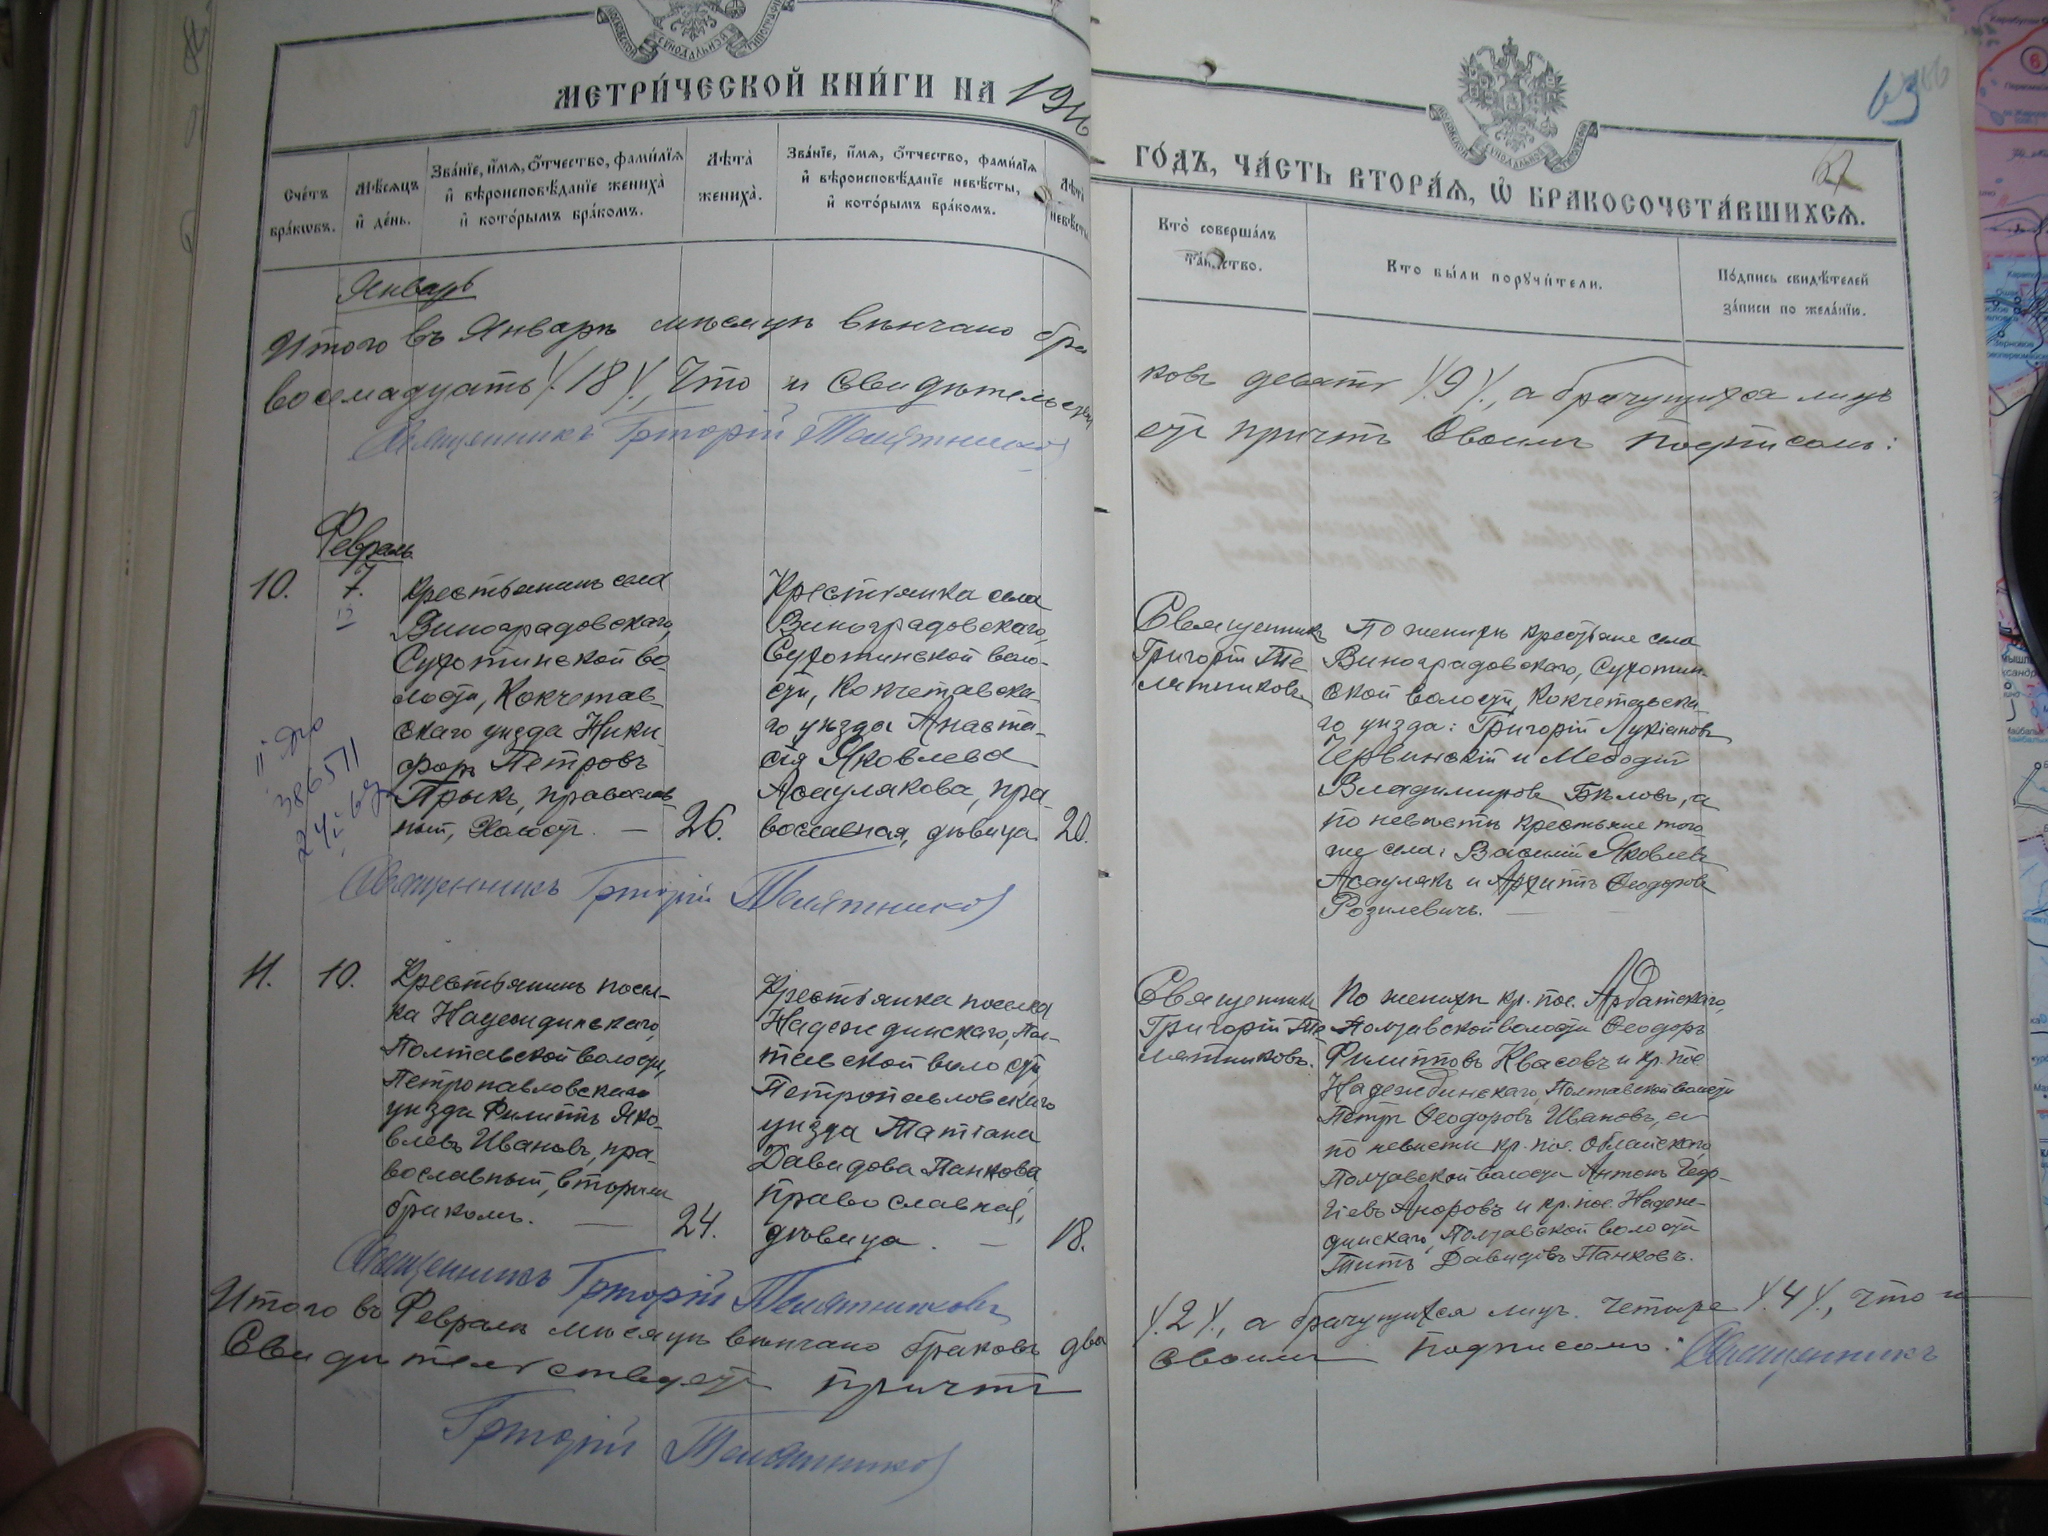 МОСКОВСКОЙ СУНОДАЛЬНОЙ ТИПОГРАФІИ
МЕТРИ́ЧЕСКОЙ КНИ́ГИ НА
ГО́ДЪ, ЧА́СТЬ ВТОРА́Я, Ѡ БРАКОСОЧЕТА́ВШИХСЯ.
63
Сче́тъ бра́кѡвъ.
Мѣ́сяцъ и҆ де́нь.
Зва́нїе, и҆́мя, ѻ҆́тчество, фами́лїя и҆ вѣроисповѣ́данїе жениха̀ и҆ кото́рымъ бра́комъ.
Лѣ́та жениха̀.
Зва́нїе, и҆́мя, ѻ҆́тчество, фами́лїя и҆ вѣроисповѣ́данїе невѣ́сты, и҆ кото́рымъ бра́комъ.
Лѣ́та невѣ́сты
Кто̀ соверша́лъ та́инство.
Кто бы́ли порꙋчи́тели.
По́дпись свидѣ́телей за́писи по жела́нїю.
Январь
Итого въ Январѣ мѣсяцѣ вѣнчано бра
ковъ девять /.9/., а брачущихся лицъ
восемнадцать /.18/., Что и свидѣтельству
етъ причтъ своимъ подписомъ:
Священникъ Григорій Телятников
Февраль
10.
7.
Крестьянинъ села
Виноградовскаго,
Сухотинской во-
лости, Кокчетав-
скаго уѣзда Ники-
форъ Петровъ
Прыкъ, православ-
ный, холостъ. —
26.
Крестьянка села
Виноградовскаго,
Сухотинской воло-
сти, Кокчетавска-
го уѣзда Анаста-
сія Яковлева
Асаулякова, пра-
вославная, дѣвица
20.
Священникъ
Григорій Те
лятниковъ
По женихѣ крестьяне села
Виноградовскаго, Сухотин-
ской волости, Кокчетавска-
го уѣзда: Григорій Лукіановъ
Червинскій и Меѳодій
Владимировъ Бѣловъ, а
по невѣстѣ крестьяне того-
же села: Василій Яковлевъ
Асаулякъ и Архипъ Ѳеодоровъ
Розилевичъ. —
386511
Священникъ Григорій Телятников
11.
10.
Крестьянинъ посел-
ка Надеждинскаго,
Полтавской волости,
Петропавловскаго
уѣзда Филиппъ Яко-
влевъ Ивановъ, пра-
вославный, вторымъ
бракомъ. —
24.
Крестьянка поселка
Надеждинскаго, Пол-
тавской волости,
Петропавловскаго
уѣзда Татіана
Давидова Панкова,
православная,
дѣвица. —
18.
Священникъ
Григорій Те
лятниковъ.
По женихѣ кр. пос. Арбатскаго,
Полтавской волости Ѳеодоръ
Филипповъ Квасовъ и кр. пос
Надеждинскаго, Полтавской волости
Петръ Ѳеодоровъ Ивановъ, а
по невѣстѣ кр. пос.
Полтавской волости Антонъ Геор-
гіевъ и кр. пос. Надеж-
динскаго, Полтавской волости
Титъ Давидовъ Панковъ.
Священникъ Григорій Телятниковъ
Итого въ Февралѣ мѣсяцѣ вѣнчано браковъ два
/.2/., а брачущихся лицъ четыре /.4/., что и
Свидѣтельствуетъ причтъ
своимъ подписомъ: Священникъ
Григорій Телятников